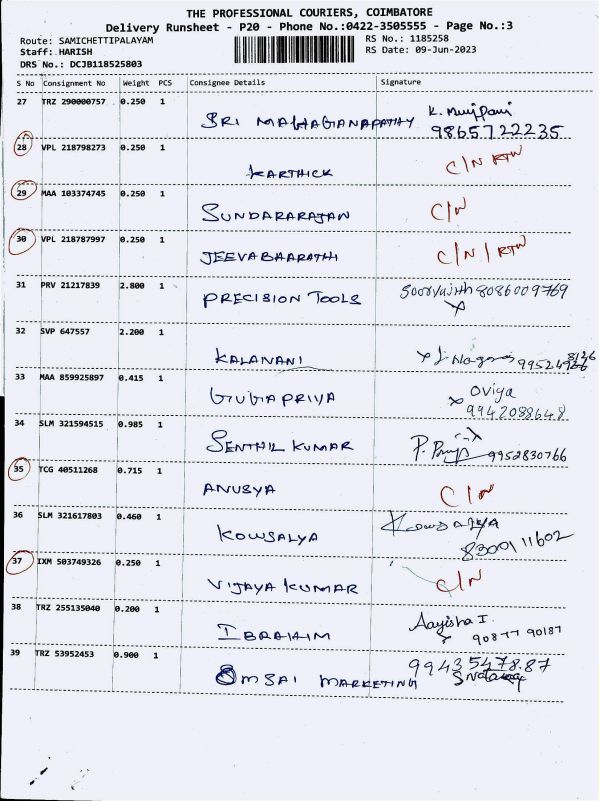 THE PROFESSIONAL COURIERS, COIMBATORE
Delivery Runsheet - P20 - Phone No.:0422-3505555 - Page No.:3
Route: SAMICHETTIPALAYAM RS No.: 1185258
Staff: HARISH RS Date: 09-Jun-2023
DRS No.: DCJB118525803
S No Consignment No Weight PCS Consignee Details Signature
27 TRZ 290000757 0.250 1
SRI MAHAGANAPATHY K. 9865722235
28 VPL 218798273 0.250 1
KARTHICK C/N RTN
29 MAA 103374745 0.250 1
SUNDARARAJAN C/N
30 VPL 218787997 0.250 1
JEEVABAARATHI C/N / RTN
31 PRV 21217839 2.800 1
PRECISION TOOLS 8086009769
32 SVP 647557 2.200 1
KALANANI
33 MAA 859925897 0.415 1
GUGAPRIYA Oviya 9942088648
34 SLM 321594515 0.985 1
SENTHIL KUMAR 9952830766
35 TCG 40511268 0.715 1
ANUSYA C/N
36 SLM 321617803 0.460 1
KOWSALYA Kowsalya 8300111602
37 IXM 503749326 0.250 1
VIJAYA KUMAR C/N
38 TRZ 255135040 0.200 1
IBRAHIM Aayisha I. 90877 90187
39 TRZ 53952453 0.900 1
OMSAI MARKETING 9943547887